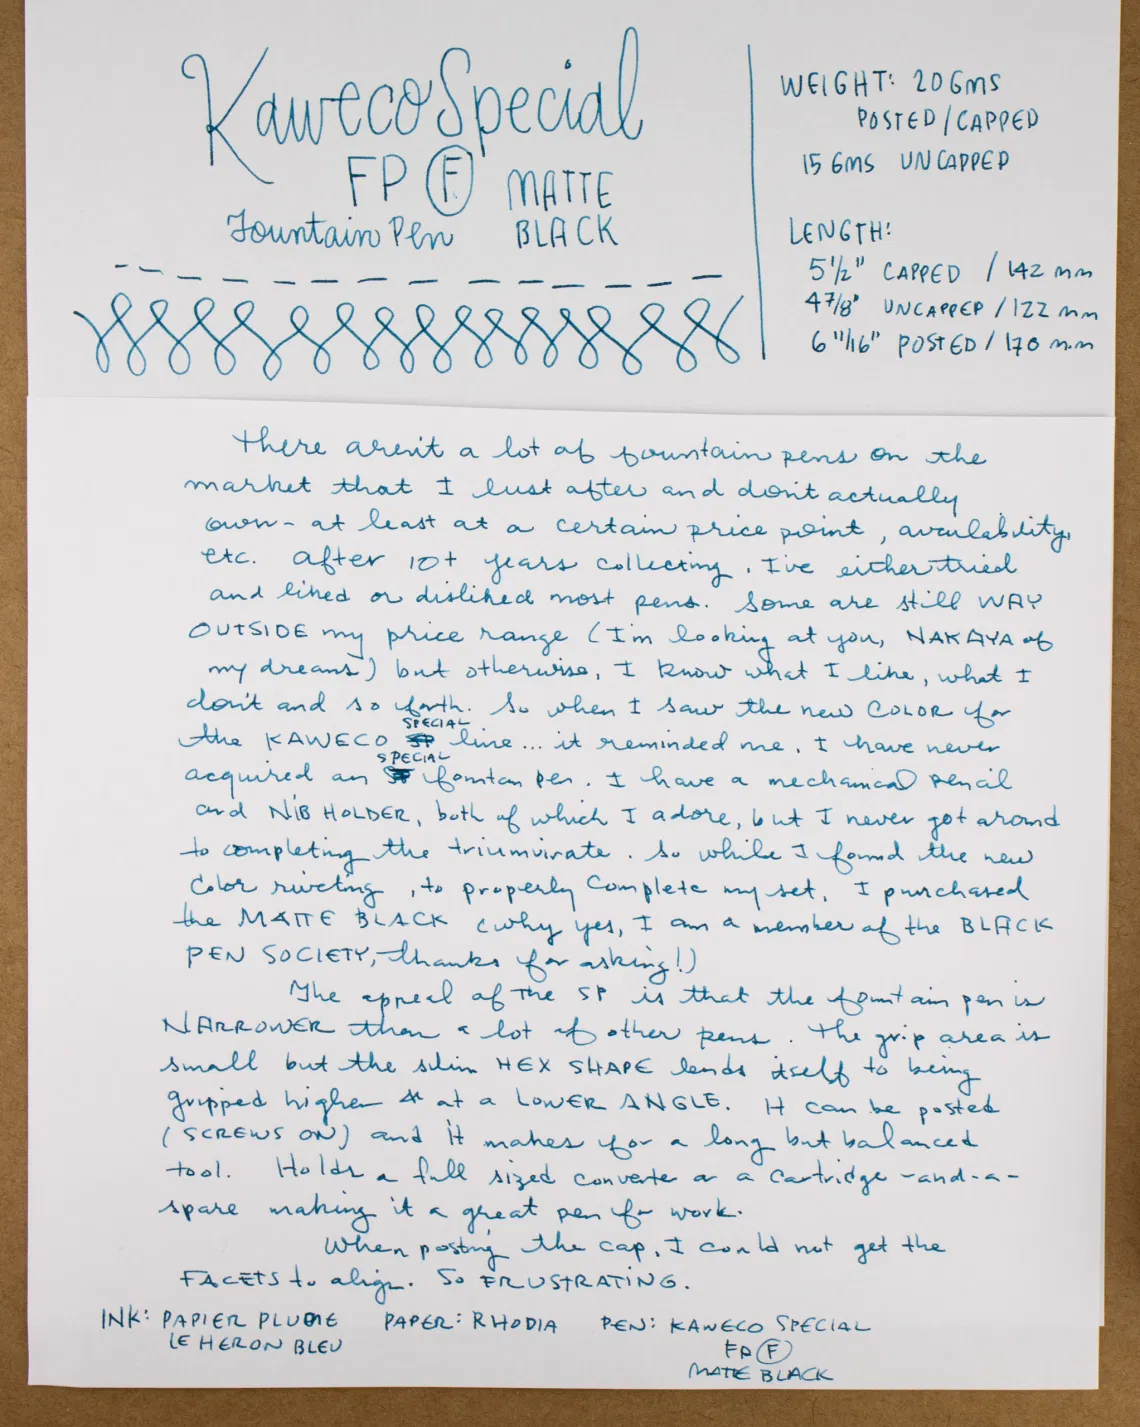 Kaweco Special
FP F MATTE
Fountain Pen BLACK
WEIGHT: 20 GMS
POSTED/CAPPED
15 GMS UNCAPPED
LENGTH:
5 1/2" CAPPED / 142 mm
4 7/8" UNCAPPED / 122 mm
6 11/16" POSTED / 170 mm
There aren't a lot of fountain pens on the
market that I lust after and don't actually
own - at least at a certain price point, availability,
etc. After 10+ years collecting, I've either tried
and liked or disliked most pens. Some are still WAY
OUTSIDE my price range (I'm looking at you, NAKAYA of
my dreams) but otherwise, I know what I like, what I
don't and so forth. So when I saw the new COLOR for
the KAWECO SPECIAL line... it reminded me, I have never
acquired an SPECIAL fountan pen. I have a mechanical pencil
and NIB HOLDER, both of which I adore, but I never got around
to completing the triumvirate. So while I found the new
color riveting, to properly complete my set, I purchased
the MATTE BLACK (why yes, I am a member of the BLACK
PEN SOCIETY, thanks for asking!)
The appeal of THE SP is that the fountain pen is
NARROWER than a lot of other pens. The grip area is
small but the slim HEX SHAPE lends itself to being
gripped higher at a LOWER ANGLE. It can be posted
(SCREWS ON) and it makes for a long but balanced
tool. Holds a full sized converter or a cartridge-and-a-
spare making it a great pen for work.
When posting the cap, I could not get the
FACETS to align. So FRUSTRATING.
INK: PAPIER PLUME PAPER: RHODIA PEN: KAWECO SPECIAL
LE HERON BLEU FP F
MATTE BLACK